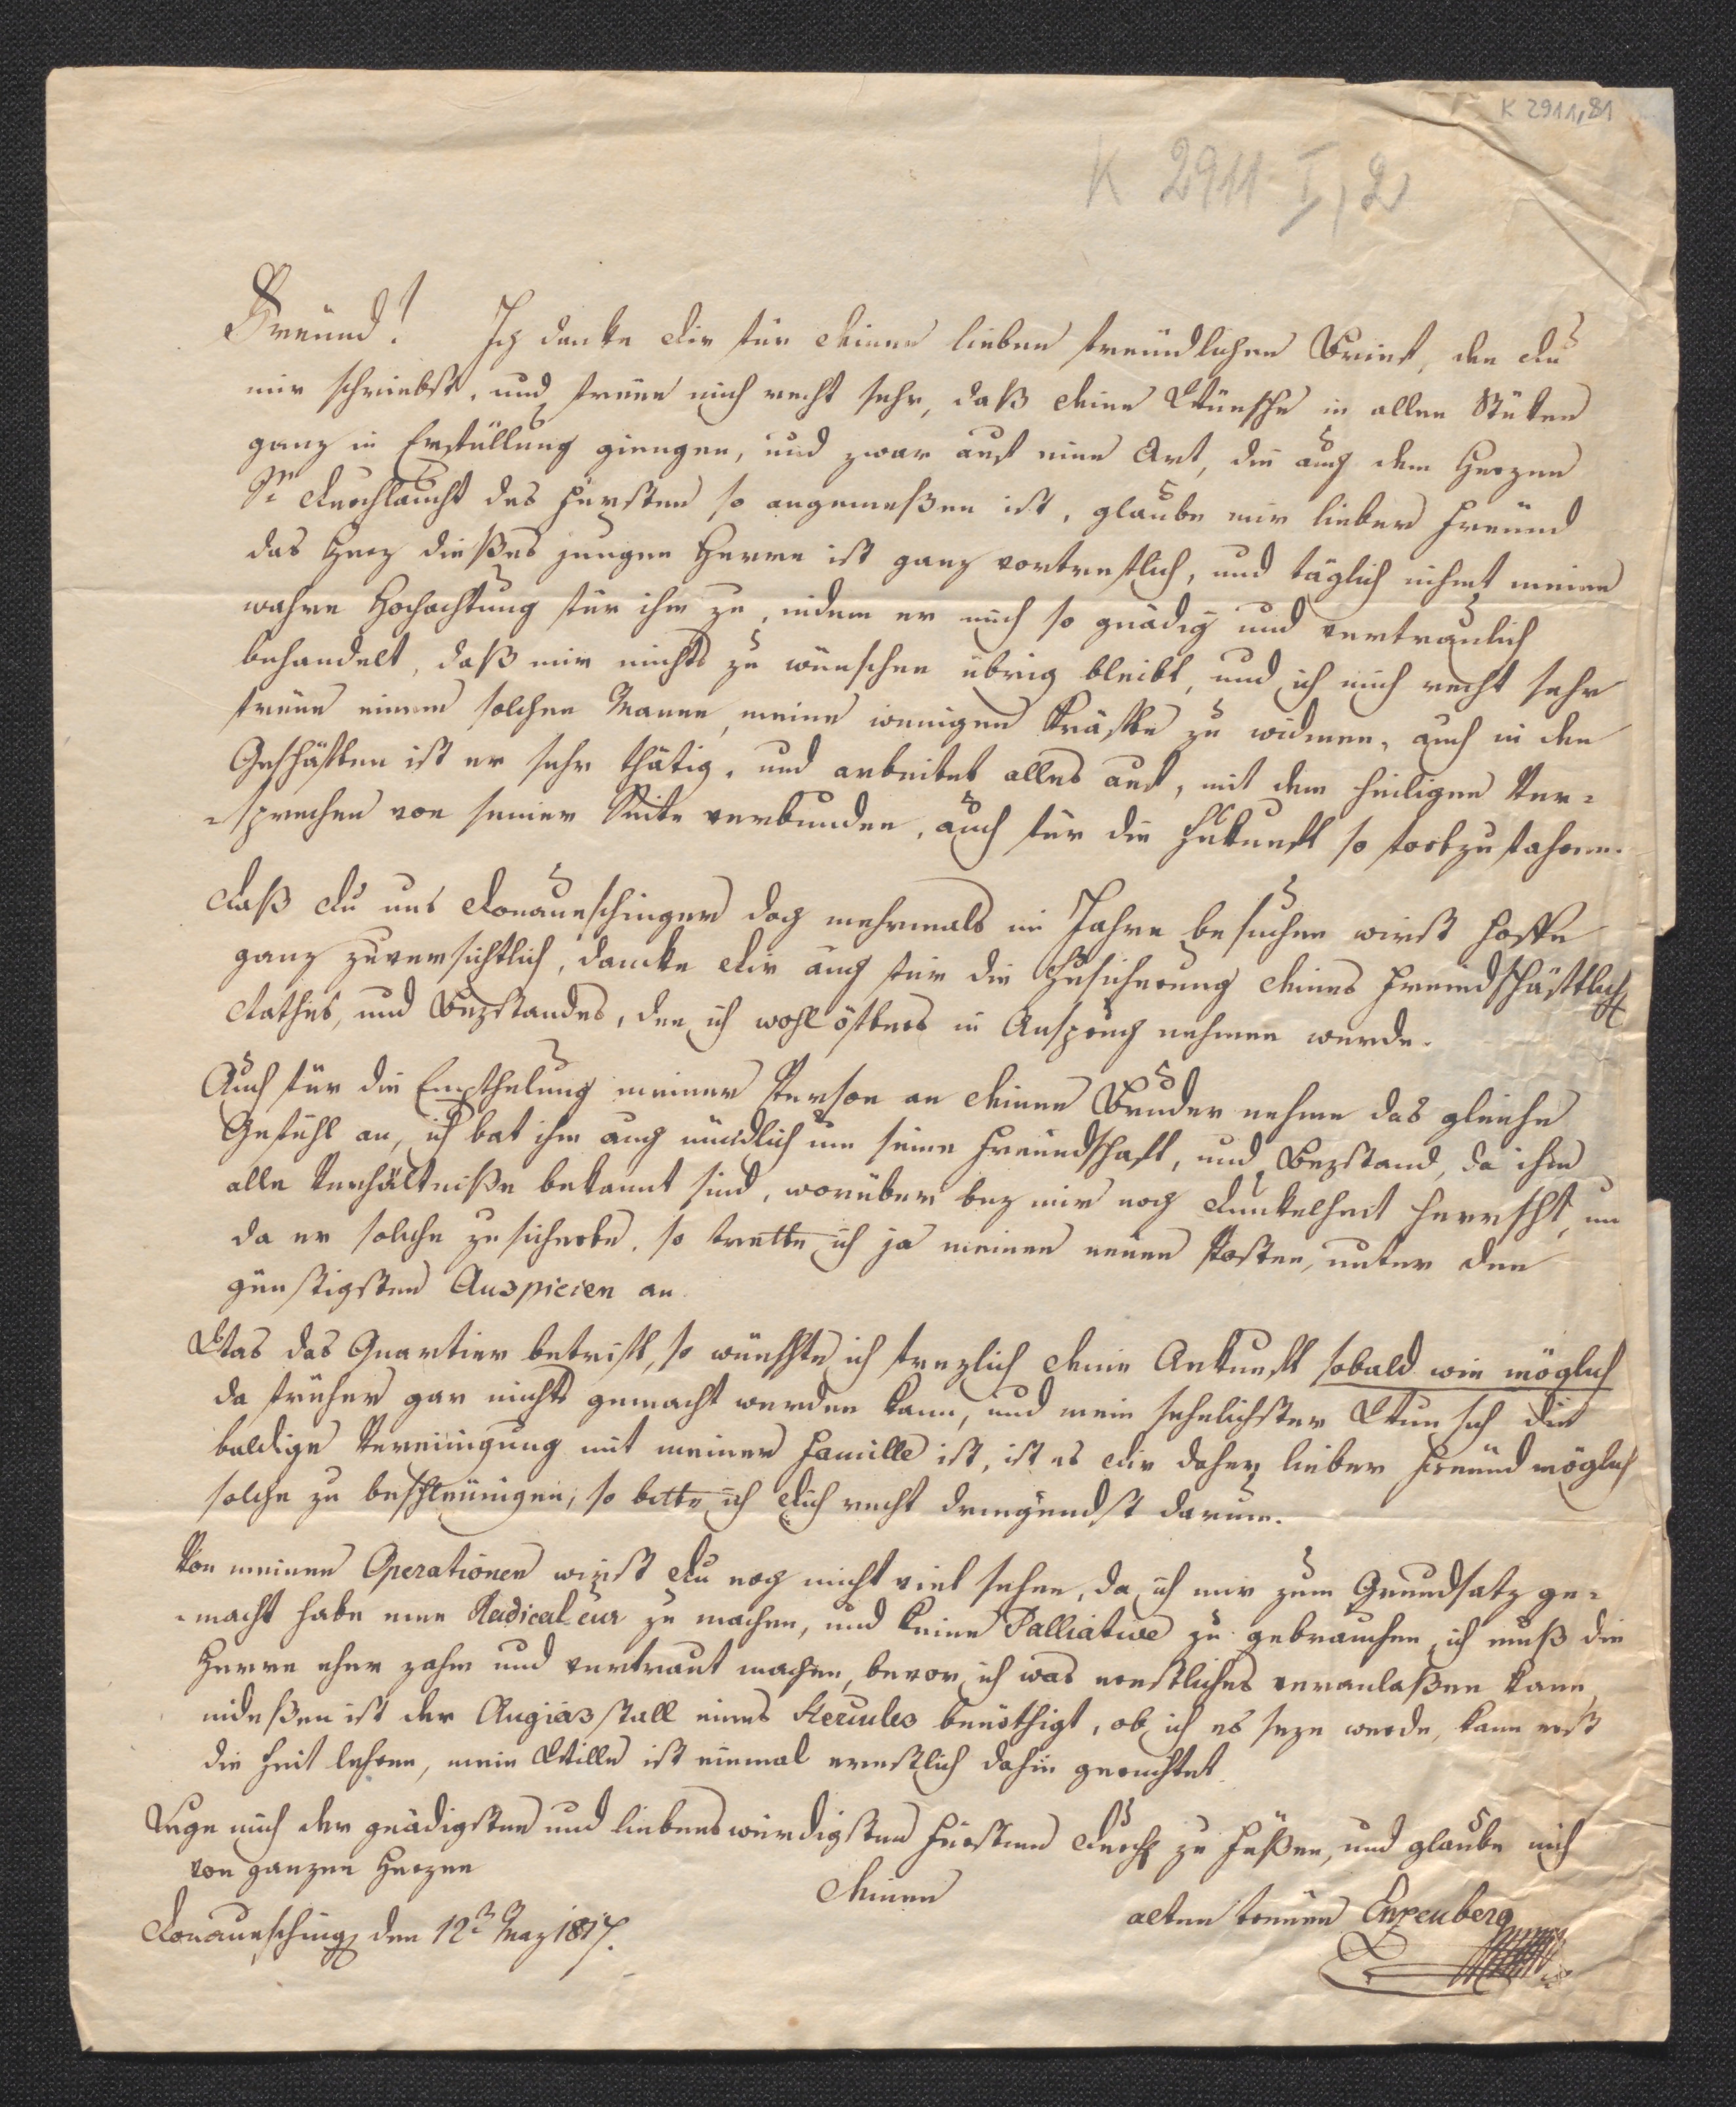 K 2911,81
K 2911 I, 2
Freund! Ich danke Dir für Deinen lieben freündlichen Brief, den Du
mir schriebst, und freüe mich recht sehr, daß Deine Wünsche in allen Stüken
ganz in Erfüllung giengen, und zwar auf eine Art, die auch dem Herzen
Sr Durchlaucht des Fürsten so angemeßen ist, glaube mir lieber Freünd
das Herz dießes jungen Herrn ist ganz vortreflich, und täglich nihmt meine
wahre Hochachtung für ihm zu, indem er mich so gnädig und vertraulich
behandelt, daß mir nichts zu wünschen übrig bleibt, und ich mich recht sehr
freüe einem solchen Manne, meine wenigen Kräfte zu widmen, auch in den
Geschäften ist er sehr thätig, und arbeitet alles auf, mit dem heiligen Ver=
=sprechen von seiner Seite verbunden, auch für die Zukunft so fortzufahren.
Daß Du uns Donaueschinger doch mehrmals im Jahre besuchen wirst hoffe
ganz zuversichtlich, danke Dir auch für die Zusicherung Deines Freündschäftlich
Rathes, und Beystandes, den ich wohl öfters in Anspruch nehmen werde.
Auch für die Empfhelung meiner Person an Deinen Bruder nehme das gleiche
Gefühl an, ich bat ihm auch mündlich um seine Freündschaft, und Beystand, da ihm
alle Verhältniße bekannt sind, worüber bey mir noch Dunkelheit herrscht, un
da er solche zusicherte, so trette ich ja meinen neüen Posten, unter den
günstigsten Auspicien an.
Was das Quartier betrift, so wünschte ich freylich Deine Ankunft sobald wie möglich
da früher gar nichts gemacht werden kann, und mein sehnlichster Wunsch die
baldige Vereinigung mit meiner Familie ist, ist es Dir daher lieber Freünd möglich
solche zu beschleünigen, so bitte ich Dich recht dringendst darum.
Von meinen Operationen wirst Du noch nicht viel sehen, da ich mir zum Grundsatz ge=
=macht habe eine Radical cur zu machen, und keine Palliative zu gebrauchen, ich muß die
Herrn eher zahm und vertraut machen, bevor ich was ernstliches veranlaßen kann,
indeßen ist der Augias stall eines Hercules benöthigt, ob ich es seye werde, kann erst
die Zeit lehren, mein Wille ist einmal ernstlich dahin gerichtet.
Lege mich der gnädigsten und liebenswürdigsten Fürstinn Durchl zu Füßen, und glaube mich
von ganzen Herzen
Deinen
alten treüen Enzenberg
Donaueschingen den 12t May 1817.